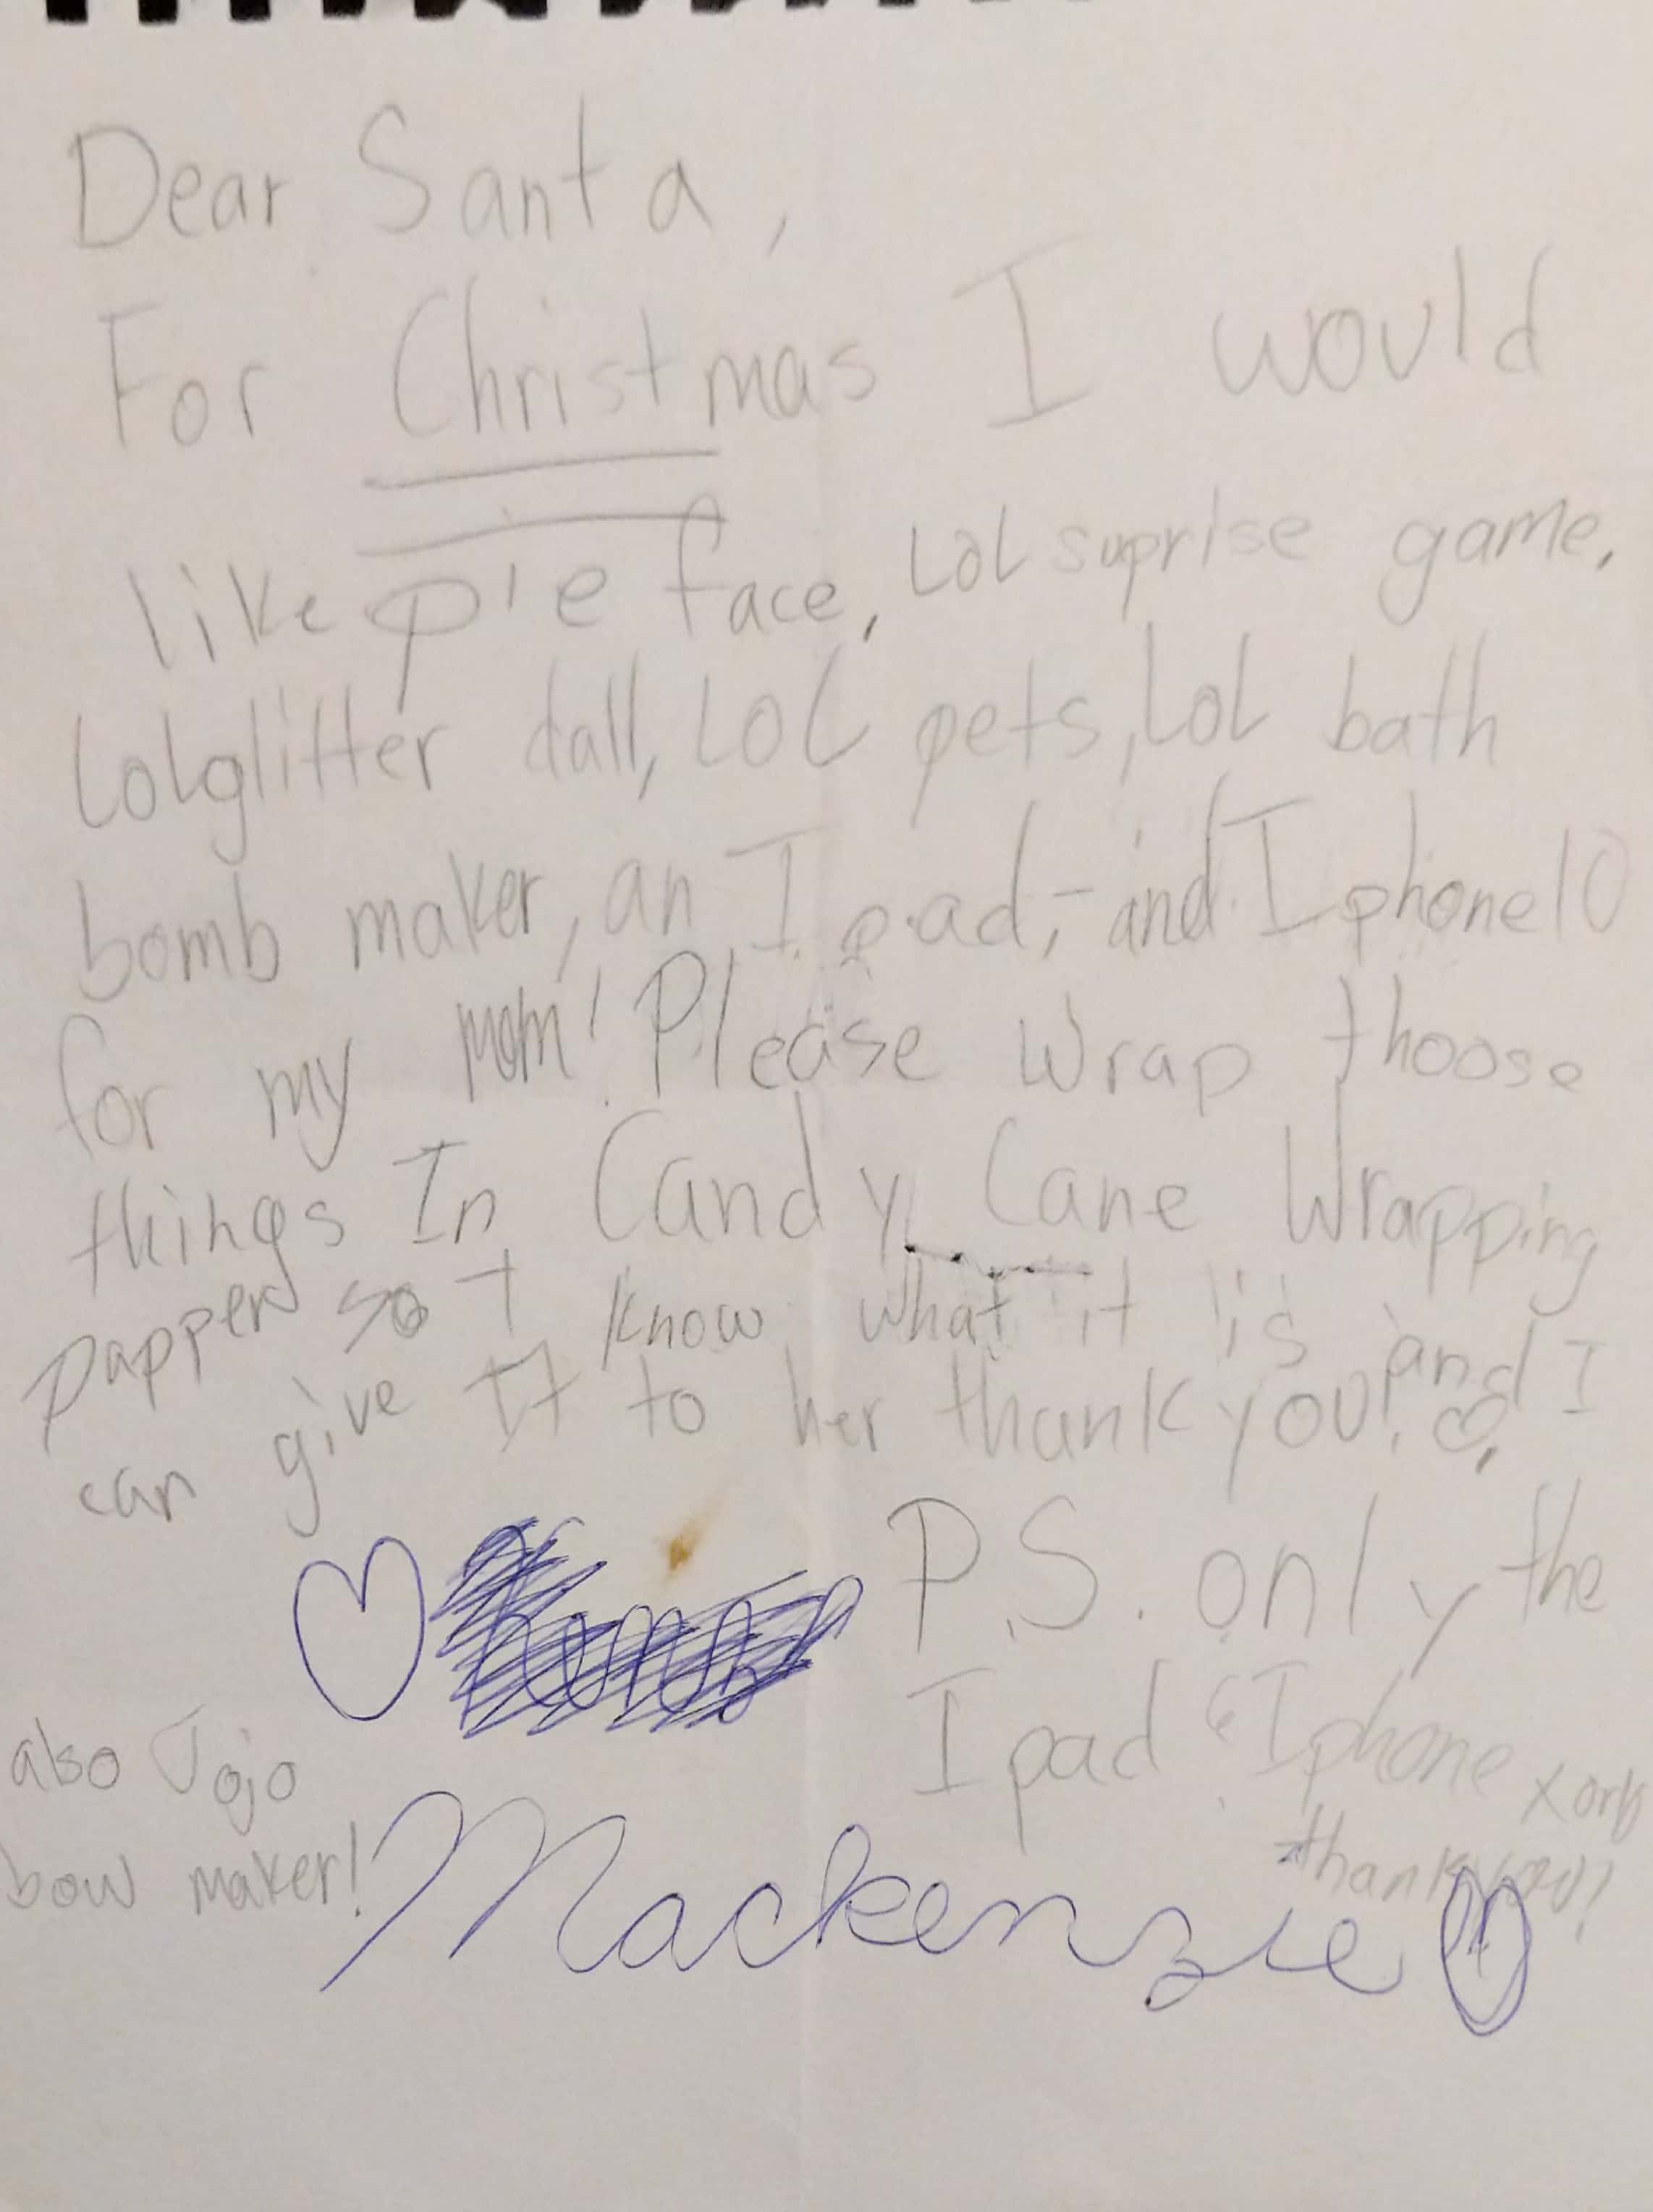 Dear Santa,
For Christmas I would
like pie face, LOL suprise game,
LOLglitter dall, LOL pets, LOL bath
bomb maker, an I pad, and Iphone10
for my mom! Please wrap thoose
things In Candy Cane Wrapping
papper so I know what it is and I
can give It to her thank you!
P.S. only the
I pad & Iphone
thank you!!
also Jojo
bow maker!
Mackenzie